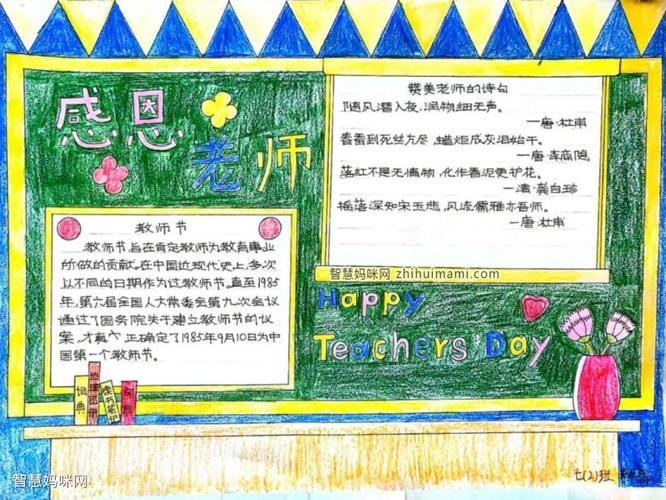 感恩
老师
赞美老师的诗句
随风潜入夜,润物细无声。
—唐·杜甫
春蚕到死丝方尽,蜡炬成灰泪始干。
—唐·李商隐
落红不是无情物,化作春泥更护花。
—清·龚自珍
摇落深知宋玉悲,风流儒雅亦吾师。
—唐·杜甫
智慧妈咪网 zhihuimami.com
教师节
教师节,旨在肯定教师为教育事业
所做的贡献。在中国近现代史上,多次
以不同的日期作为过教师节。直至1985
年,第六届全国人大常委会第九次会议
通过了国务院关于建立教师节的议
案,才真正确定了1985年9月10日为中
国第一个教师节。
Happy
Teachers' Day
词典
七(2)班
智慧妈咪网